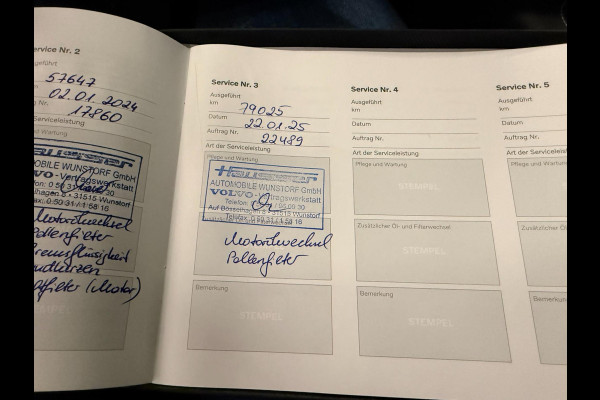 Service Nr. 2
ausgeführt
57647
02.01.2024
Nr. 17860
und Wartung
Hausserer
MOBILE WUNSTORF GmbH
VOLVO-Vertragswerkstatt
31515 Wunstorf
0 50 31 / 1 58 16
Motorölwechsel
Pollenfilter
Bremsflüssigkeit
Zündkerzen
Luftfilter (Motor)
Service Nr. 3
Ausgeführt
km 79025
Datum 22.01.25
Auftrag Nr. 22489
Art der Serviceleistung
Pflege und Wartung
AUTOMOBILE WUNSTORF GmbH
VOLVO-Vertragswerkstatt
Telefon: 0 50 31 / 95 09 30
31515 Wunstorf
Telefax: 0 50 31 / 1 58 16
Motorölwechsel
Pollenfilter
Bemerkung
STEMPEL
Service Nr. 4
Ausgeführt
km
Datum
Auftrag Nr.
Art der Serviceleistung
Pflege und Wartung
STEMPEL
Zusätzlicher Öl- und Filterwechsel
STEMPEL
Bemerkung
STEMPEL
Service Nr. 5
Ausgeführt
km
Datum
Auftrag Nr.
Art der Serviceleistung
Pflege und Wartung
Zusätzlicher Öl-
Bemerkung